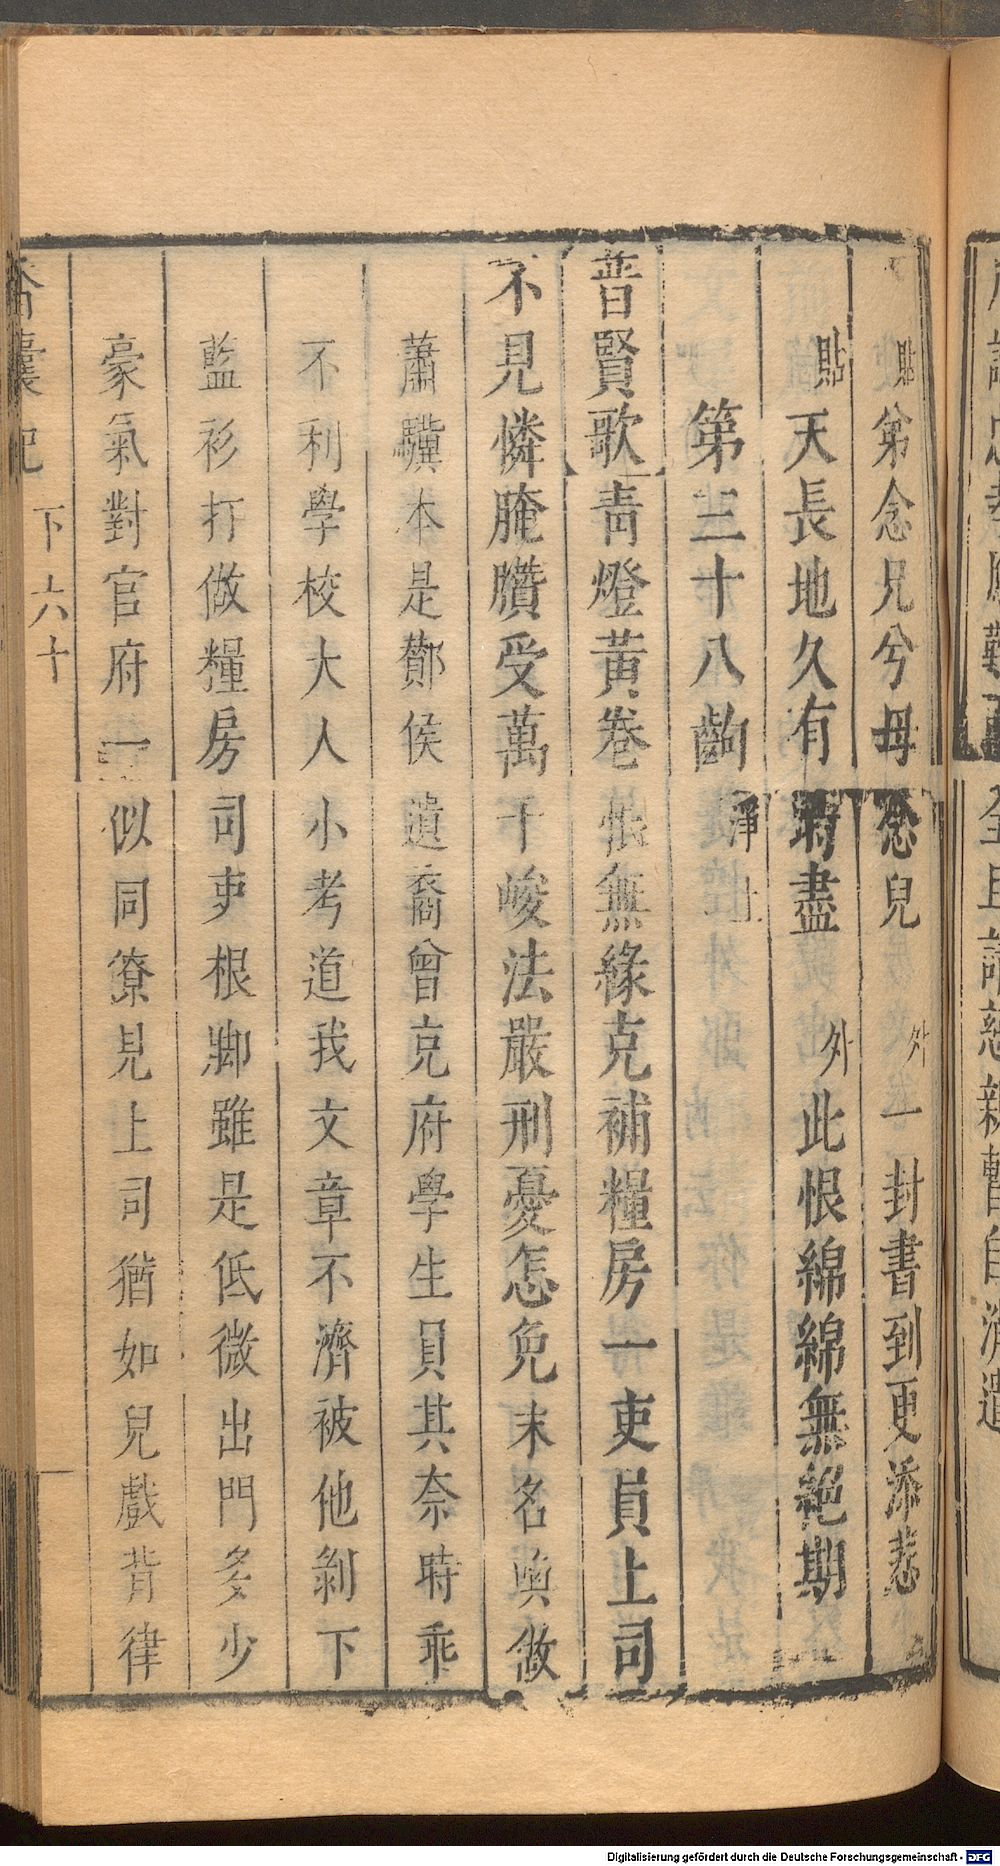 貼弟念兄兮母念兒外一封書到更添悲
貼天長地久有時盡外此恨綿綿無絕期
第三十八齣淨上
普賢歌青燈黃卷恨無緣克補糧房一吏員上司
不見憐腌臢受萬千峻法嚴刑憂怎免末名喚做
蕭驥本是酇侯遺裔曾克府學生員其奈時乖
不利學校大人小考道我文章不濟被他剝下
藍衫打做糧房司吏根脚雖是低微出門多少
豪氣對官府一似同寮見上司猶如兒戲背律
香囊記 下 六十
Digitalisierung gefördert durch die Deutsche Forschungsgemeinschaft - DFG